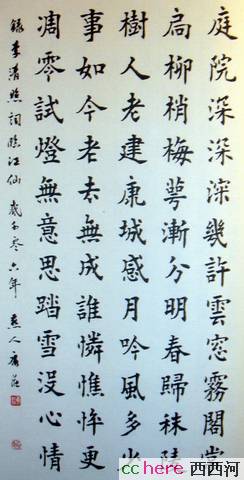 庭院深深深幾許雲窓霧閣常
扃柳梢梅萼漸分明春歸秣陵
樹人老建康城感月吟風多少
事如今老去無成誰憐憔悴更
凋零試燈無意思踏雪沒心情
錄李清照詞臨江仙 零六年
cchere 西西河